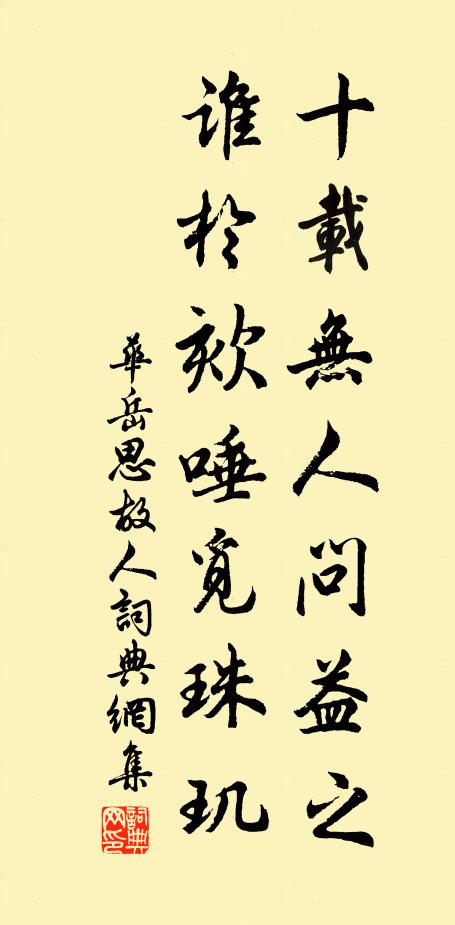 十載無人問益之
誰於欬唾覓珠玑
華岳思故人詞典網集
詞典网印